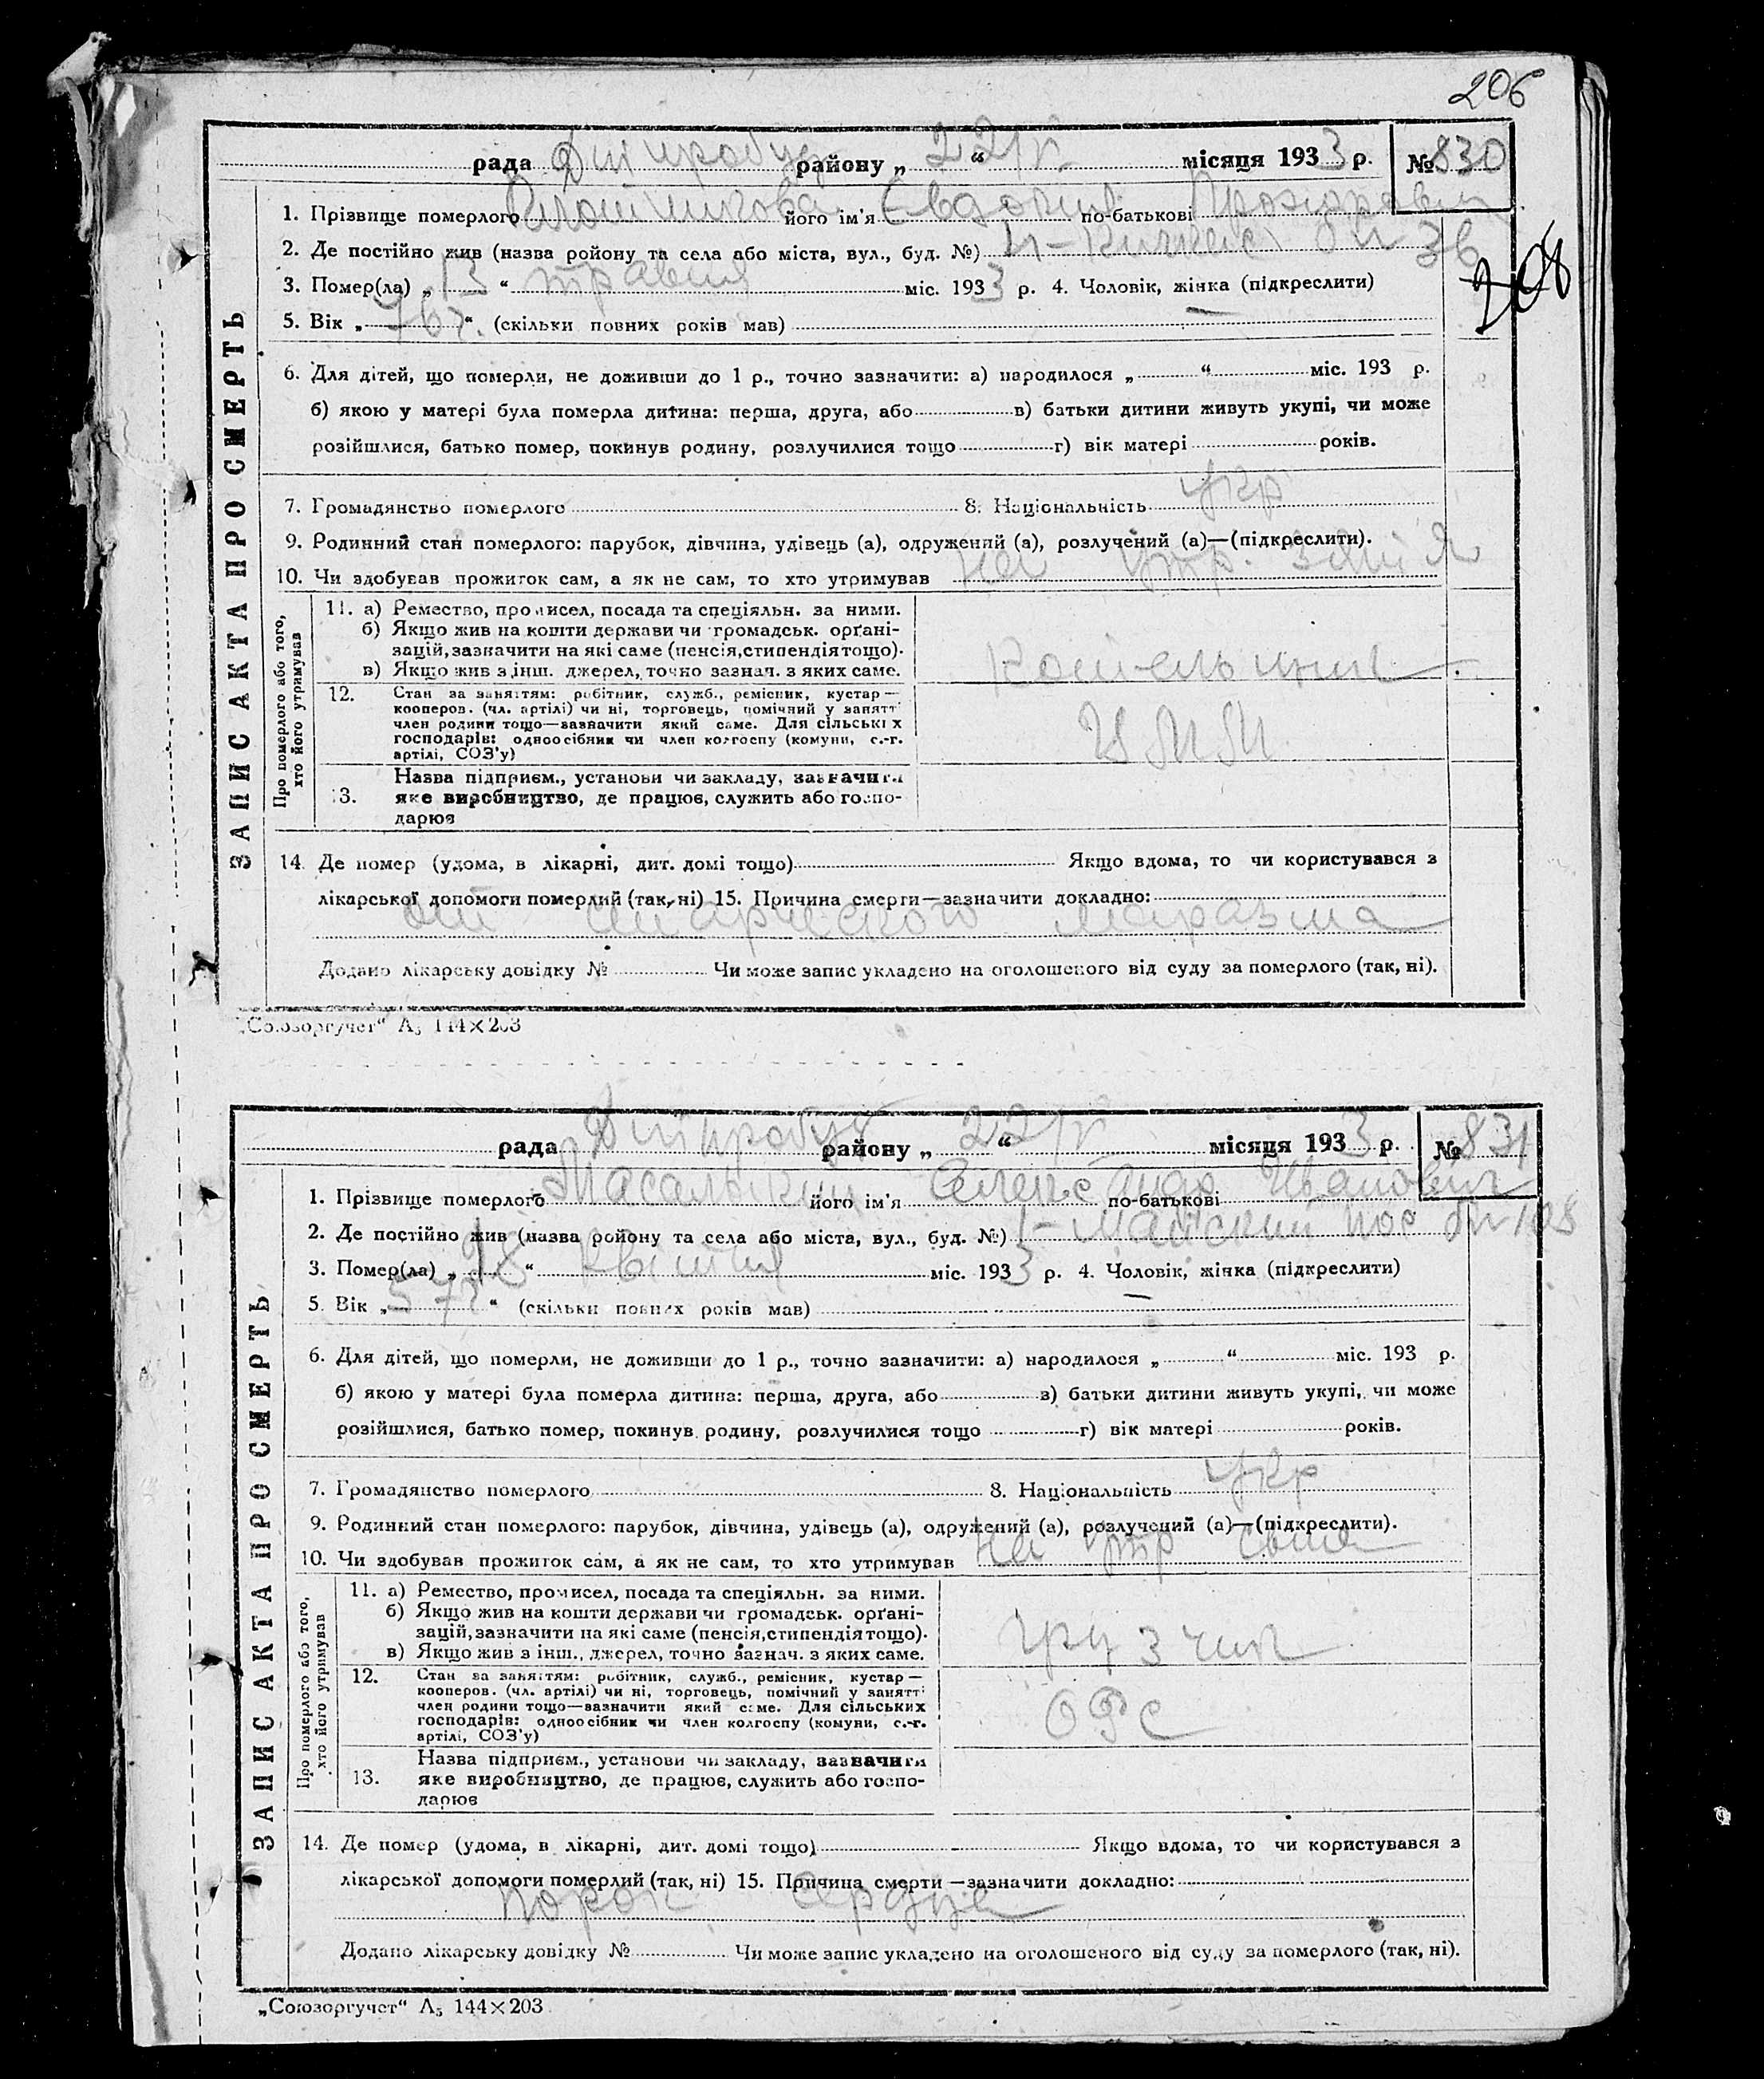 206
рада Дніпробуд району „ 22/V “ місяця 1933 р. № 830
1. Прізвище померлого Плотнікова його ім'я Євдокія по-батькові Прохоровна
2. Де постійно жив (назва району та села або міста, вул., буд. №) 36
208
3. Помер(ла) „ 13 “ травня міс. 1933 р. 4. Чоловік, жінка (підкреслити)
5. Вік „ 76 г. “ (скільки повних років мав)
6. Для дітей, що померли, не доживши до 1 р., точно зазначити: а) народилося „ “ міс. 193 р.
б) якою у матері була померла дитина: перша, друга, або в) батьки дитини живуть укупі, чи може
розійшлися, батько помер, покинув родину, розлучилися тощо г) вік матері років.
7. Громадянство померлого 8. Національність Укр
9. Родинний стан померлого: парубок, дівчина, удівець (а), одружений (а), розлучений (а)—(підкреслити).
10. Чи здобував прожиток сам, а як не сам, то хто утримував на утр. зятя
11. а) Ремество, промисел, посада та спеціяльн. за ними.
б) Якщо жив на кошти держави чи громадськ. орґані-
зацій, зазначити на які саме (пенсія, стипендія тощо).
в) Якщо жив з інш. джерел, точно зазнач. з яких саме.
12. Стан за заняттям: робітник, служб., ремісник, кустар—
кооперов. (чл. артілі) чи ні, торговець, помічний у занятті
член родини тощо—зазначити який саме. Для сільських
господарів: одноосібник чи член колгоспу (комуни, с.-г.
артілі, СОЗ'у)
13. Назва підприєм., установи чи закладу, зазначити
яке виробництво, де працює, служить або госпо-
дарює
Про померлого або того,
хто його утримував
ЗАПИС АКТА ПРО СМЕРТЬ
14. Де помер (удома, в лікарні, дит. домі тощо) Якщо вдома, то чи користувався з
лікарської допомоги померлий (так, ні) 15. Причина смерти—зазначити докладно:
от старческого маразма
Додано лікарську довідку № Чи може запис укладено на оголошеного від суду за померлого (так, ні).
„Союзоргучет“ А₅ 144×203
рада Дніпробуд району „ 22/V “ місяця 1933 р. № 831
1. Прізвище померлого його ім'я Александр по-батькові Іванович
2. Де постійно жив (назва району та села або міста, вул., буд. №) 1-Майский пос
3. Помер(ла) „ 18 “ квітня міс. 1933 р. 4. Чоловік, жінка (підкреслити)
5. Вік „ 57 г “ (скільки повних років мав)
6. Для дітей, що померли, не доживши до 1 р., точно зазначити: а) народилося „ “ міс. 193 р.
б) якою у матері була померла дитина: перша, друга, або в) батьки дитини живуть укупі, чи може
розійшлися, батько помер, покинув родину, розлучилися тощо г) вік матері років.
7. Громадянство померлого 8. Національність Укр
9. Родинний стан померлого: парубок, дівчина, удівець (а), одружений (а), розлучений (а)—(підкреслити).
10. Чи здобував прожиток сам, а як не сам, то хто утримував на утр сына
11. а) Ремество, промисел, посада та спеціяльн. за ними.
б) Якщо жив на кошти держави чи громадськ. орґані-
зацій, зазначити на які саме (пенсія, стипендія тощо).
в) Якщо жив з інш., джерел, точно зазнач. з яких саме.
грузчик
12. Стан за заняттям: робітник, служб., ремісник, кустар—
кооперов. (чл. артілі) чи ні, торговець, помічний у занятті
член родини тощо—зазначити який саме. Для сільських
господарів: одноосібник чи член колгоспу (комуни, с.-г.
артілі, СОЗ'у)
ОРС
13. Назва підприєм., установи чи закладу, зазначити
яке виробництво, де працює, служить або госпо-
дарює
Про померлого або того,
хто його утримував
ЗАПИС АКТА ПРО СМЕРТЬ
14. Де помер (удома, в лікарні, дит. домі тощо) Якщо вдома, то чи користувався з
лікарської допомоги померлий (так, ні) 15. Причина смерти—зазначити докладно:
порок сердца
Додано лікарську довідку № Чи може запис укладено на оголошеного від суду за померлого (так, ні).
„Союзоргучет“ А₅ 144×203